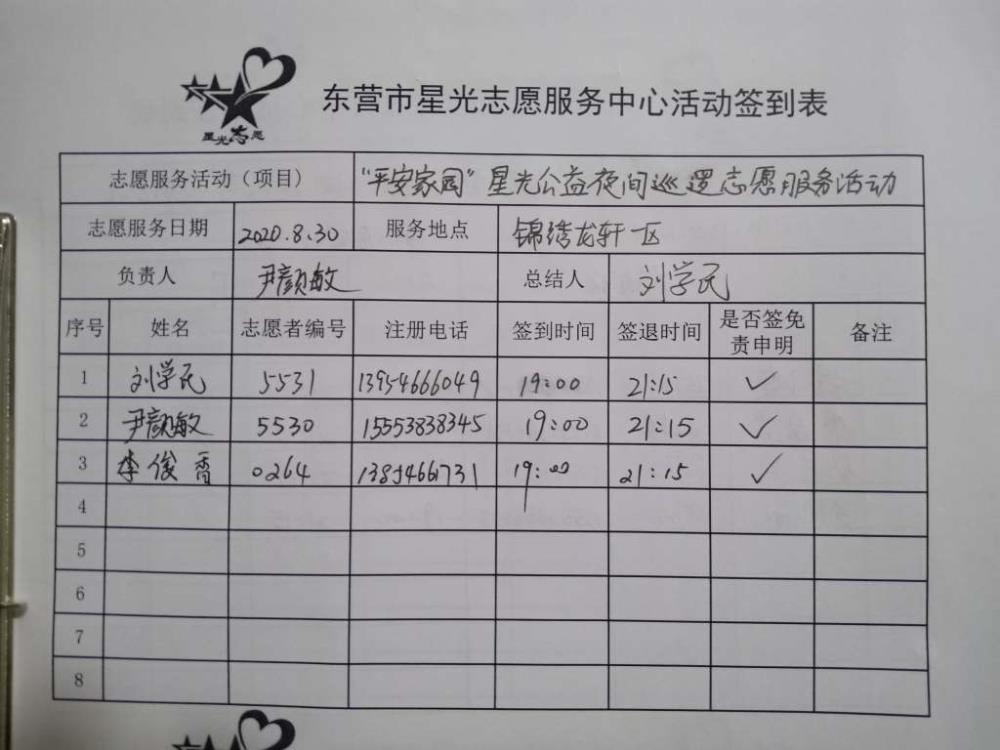 星光志愿
东营市星光志愿服务中心活动签到表
志愿服务活动（项目） “平安家园”星光公益夜间巡逻志愿服务活动
志愿服务日期 2020.8.30 服务地点 锦绣龙轩一区
负责人 尹颜敏 总结人 刘学民
序号 姓名 志愿者编号 注册电话 签到时间 签退时间 是否签免责申明 备注
1 刘学民 5531 13954666049 19:00 21:15 ✓
2 尹颜敏 5530 15553838345 19:00 21:15 ✓
3 李俊香 0264 19:00 21:15 ✓
4
5
6
7
8